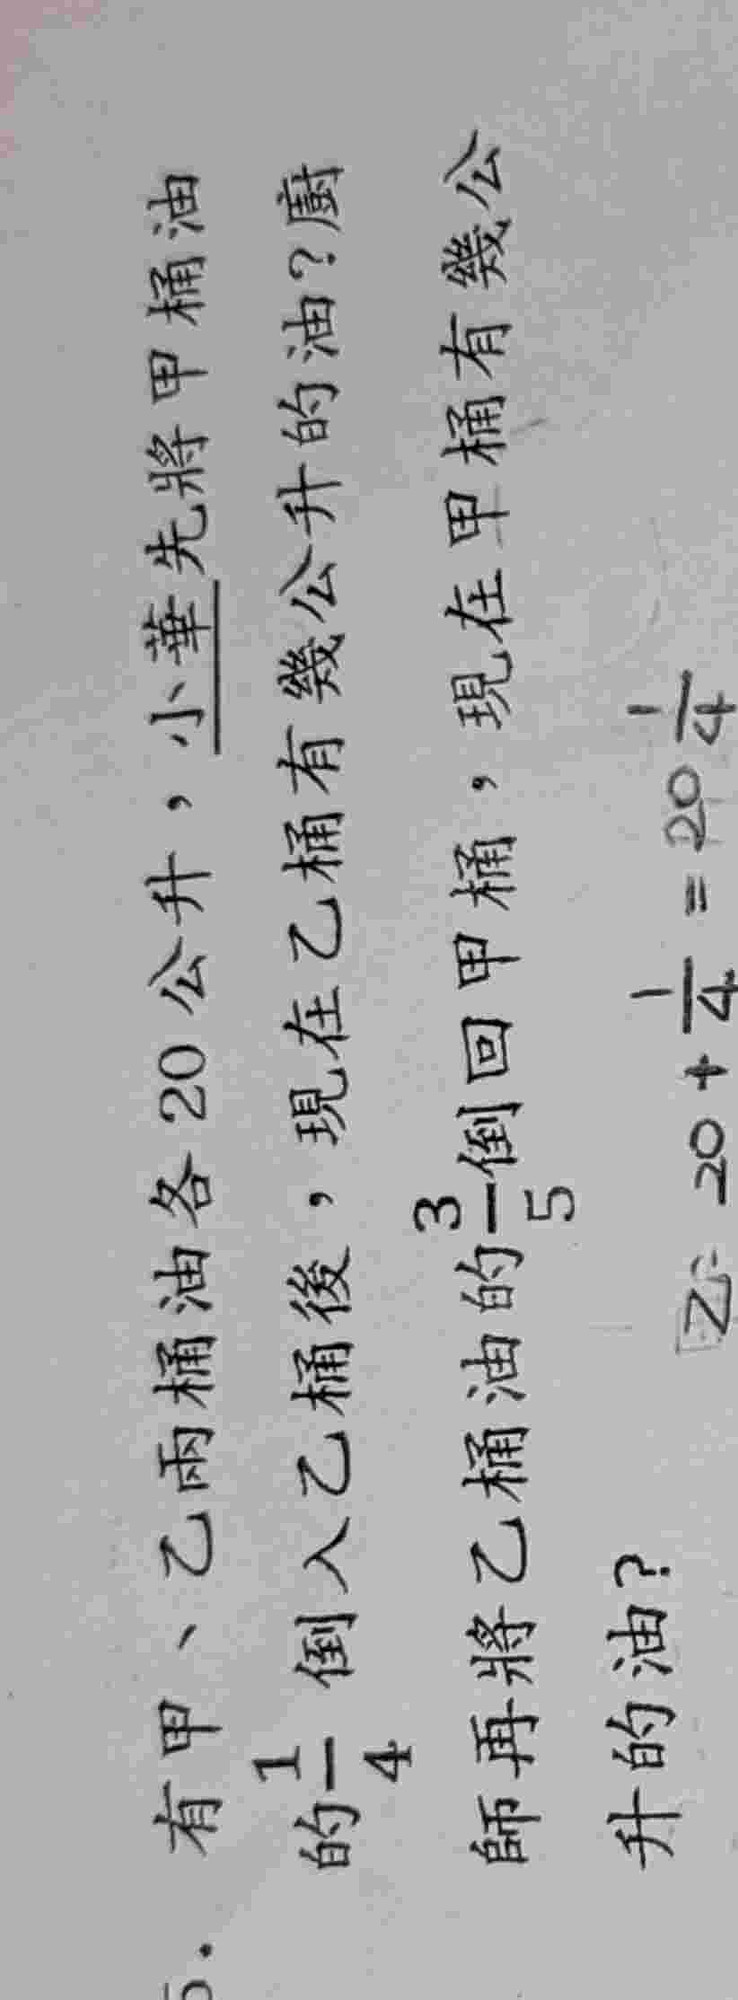 5. 有甲、乙兩桶油各20公升，小華先將甲桶油
的1/4倒入乙桶後，現在乙桶有幾公升的油？廚
師再將乙桶油的3/5倒回甲桶，現在甲桶有幾公
升的油？
乙: 20 + 1/4 = 20 1/4